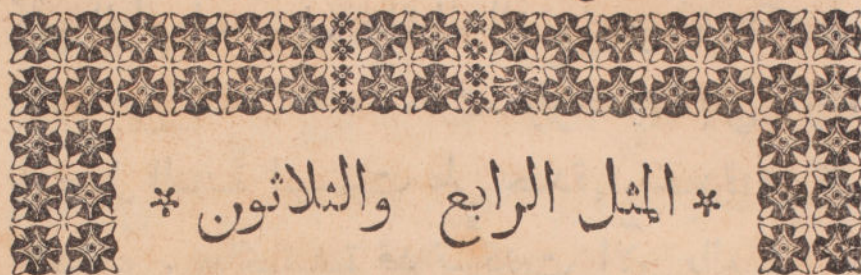 * المثل الرابع والثلاثون *